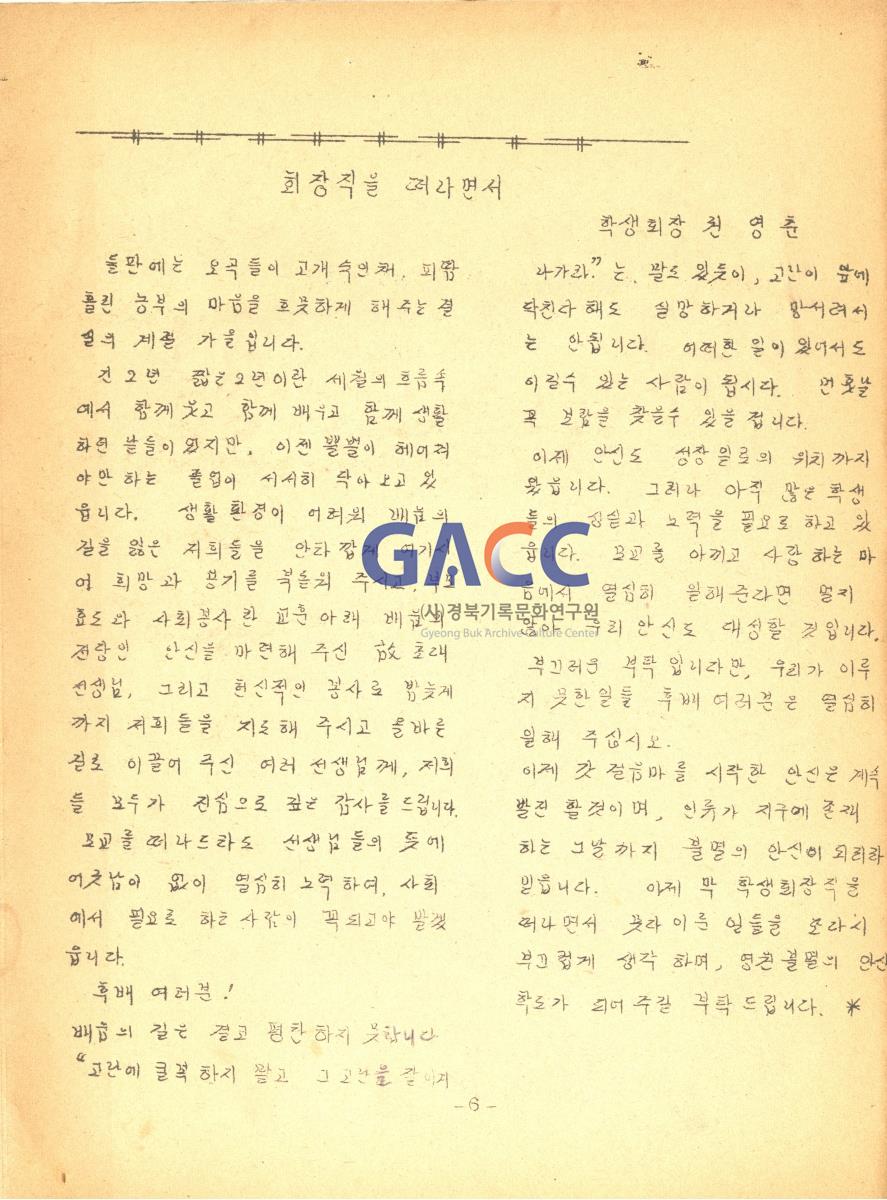 회장직을 떠나면서
학생회장 권 영 춘
들판에는 오곡들이 고개 숙인채, 피땀
흘린 농부의 마음을 흐뭇하게 해주는 결
실의 계절 가을입니다.
긴 2년 짧은 2년이란 세월의 흐름속
에서 함께 웃고 함께 배우고 함께 생활
하던 날들이 었지만, 이젠 뿔뿔이 헤어져
야만 하는 졸업이 서서히 닥아오고 있
읍니다. 생활 환경이 어려워 배움의
길을 잃은 저희들을 안타깝게 여기시
어 희망과 용기를 북돋워 주시고, 부모
효도와 사회봉사란 교훈 아래 배움의
전당인 안신을 마련해 주신 故 초대
선생님, 그리고 헌신적인 봉사로 밤늦게
까지 저희들을 지도해 주시고 올바른
길로 이끌어 주신 여러 선생님께, 저희
들 모두가 진심으로 깊은 감사를 드립니다.
모교를 떠나드라도 선생님들의 뜻에
어긋남이 없이 열심히 노력하여, 사회
에서 필요로 하는 사람이 꼭 되고야 말겠
읍니다.
후배 여러분!
배움의 길은 결코 평탄하지 못합니다
"고난에 굴복하지 말고 그 고난을 갈아제
나가라." 는 말도 있듯이, 고난이 앞에
닥친다 해도 실망하거나 망서려서
는 안됩니다. 어떠한 일이 있어서도
이길수 있는 사람이 됩시다. 먼 훗날
꼭 보람을 찾을수 있을 겁니다.
이제 안신도 성장일로의 위치까지
왔읍니다. 그러나 아직 많은 학생
들의 성실과 노력을 필요로 하고 있
읍니다. 모교를 아끼고 사랑하는 마
음에서 열심히 일해준다면 멀지
않아 우리 안신도 대성할 것입니다.
부끄러운 부탁 입니다만, 우리가 이루
지 못한일들 후배 여러분은 열심히
일해 주십시오.
이제 갓 걸음마를 시작한 안신은 계속
발전 할것이며, 인류가 지구에 존재
하는 그날까지 불멸의 안신이 되리라
믿읍니다. 이제 막 학생회장직을
떠나면서 못다 이룬 일들을 모라시
부끄럽게 생각 하며, 영원불멸의 안신
학도가 되어 주길 부탁 드립니다. *
-6-
GACC
(사)경북기록문화연구원
Gyeong Buk Archive Culture Center